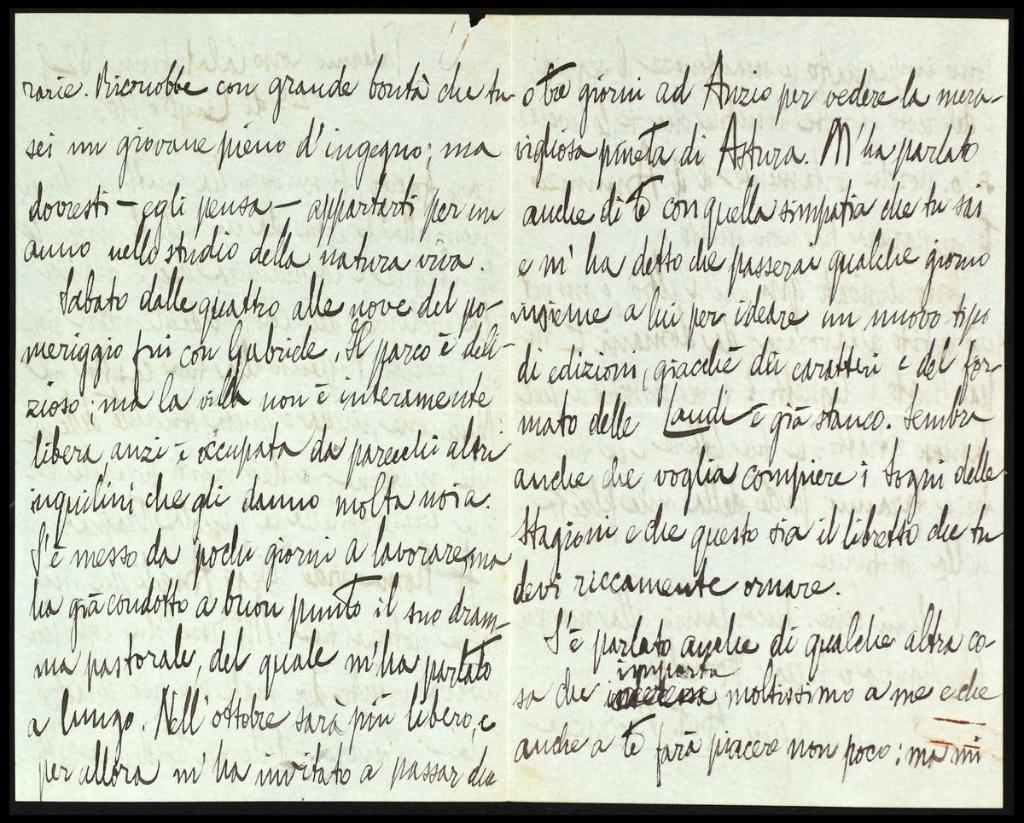 rarie. Riconobbe con grande bontà che tu
sei un giovane pieno d'ingegno; ma
dovresti – egli pensa – appartarti per un
anno nello studio della natura viva.
Sabato dalle quattro alle nove del po-
meriggio fui con Gabriele. Il parco è deli-
zioso; ma la villa non è interamente
libera, anzi è occupata da parecchi altri
inquilini che gli danno molta noia.
S'è messo da pochi giorni a lavorare, ma
ha già condotto a buon punto il suo dram-
ma pastorale, del quale m'ha parlato
a lungo. Nell'ottobre sarà più libero, e
per allora m'ha invitato a passar due
o tre giorni ad Anzio per vedere la mera-
vigliosa pineta di Astura. M'ha parlato
anche di te con quella simpatia che tu sai
e m'ha detto che passerai qualche giorno
insieme a lui per ideare un nuovo tipo
di edizioni, giacchè dei caratteri e del for-
mato delle Laudi è già stanco. Sembra
anche che voglia compiere i Sogni delle
Stagioni e che questo sia il libretto che tu
devi riccamente ornare.
S'è parlato anche di qualche altra co-
sa che importa moltissimo a me e che
anche a te farà piacere non poco: ma mi